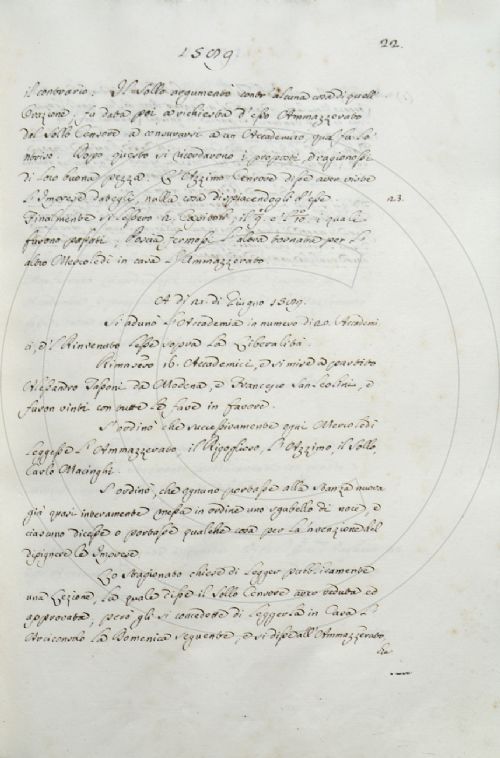 1589.
22.
il contrario. Il Sollo argumentò contr' alcuna cosa di quell'
Orazione, fu data poi a richiesta d'esso Ammazzerato
dal Sollo Censore a censurarsi a un Accademico qual fu lo
. Dopo questo si ricordarono i proposti, e ragionossi
di loro buona pezza. L'Azzimo Censore disse aver viste
l'Imprese dategli, nulla cosa dispiacendogli d'esse. 23.
Finalmente si lessero 2. Capitoli, il 9.º e 'l 10.º i quali
furono passati. Poscia fermossi l'altra tornata per l'
altro Mercoledì in casa l'Ammazzerato.
A dì 21. di Giugno 1589.
Si adunò l'Accademia in numero di 20. Accademi
ci, e 'l Rinvenuto lesse sopra la Liberalità.
Rimasero 16. Accademici, e si mise a partito
Alessandro Tassoni da Modena, e Francesco Sanleolini, e
furon vinti con tutte le fave in favore.
S'ordinò che successivamente ogni Mercoledì
leggesse l'Ammazzerato, il Rigoglioso, l'Azzimo, il Sollo,
Carlo Macinghi.
S'ordinò, che ognuno portasse alla Stanza nuova
già quasi interamente messa in ordine uno sgabello di noce, e
ciascuno dicesse o portasse qualche cosa per la invenzione del
dipignere le Imprese.
Lo Stagionato chiese di legger pubblicamente
una Lezione, la quale disse il Sollo Censore aver veduta ed
approvata, però gli si concedette di leggerla in Casa l'
Arciconsolo la Domenica seguente, e si disse all'Ammazzerato,